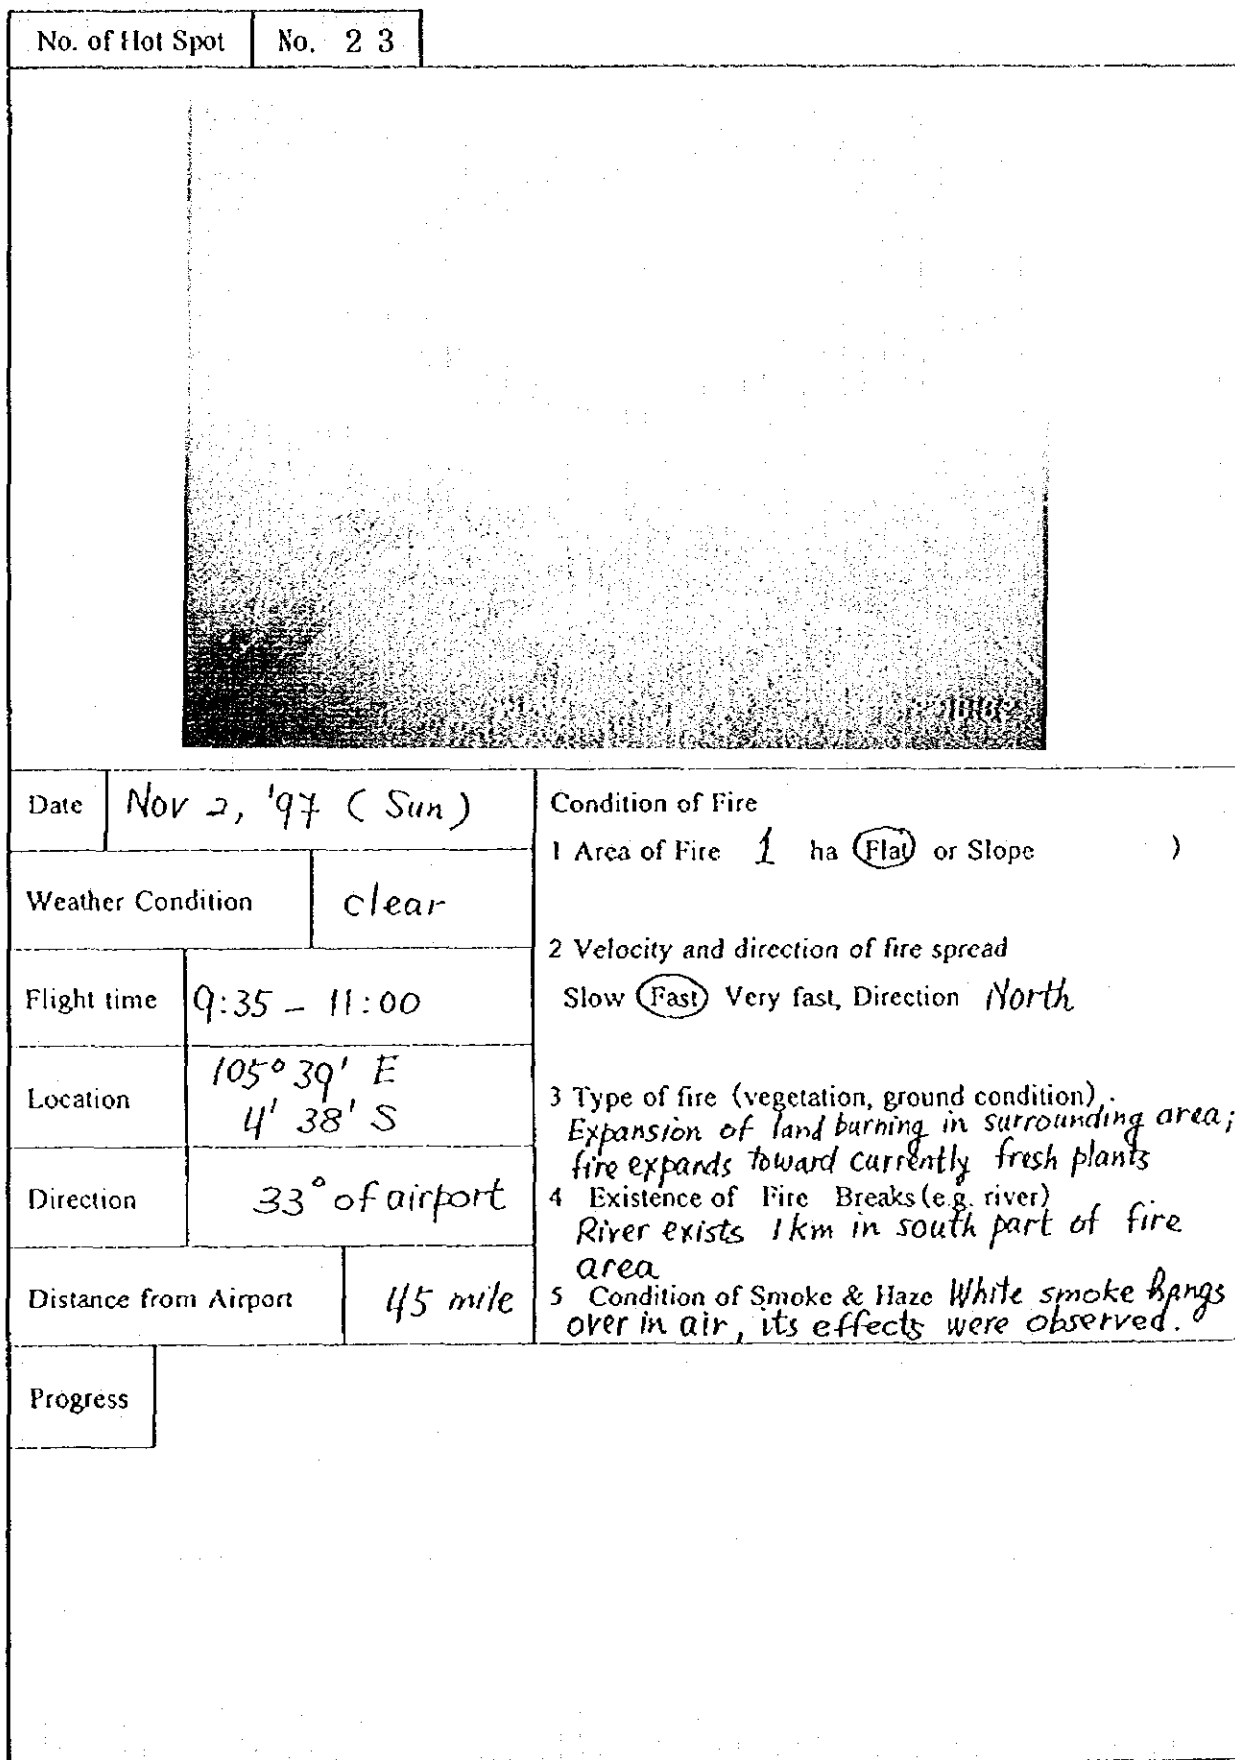 No. of Hot Spot
No. 2 3
Date
Nov 2, '97 ( Sun )
Weather Condition
clear
Flight time
9:35 - 11:00
Location
105° 39' E
4' 38' S
Direction
33° of airport
Distance from Airport
45 mile
Condition of Fire
1 Area of Fire 1 ha (Flat) or Slope )
2 Velocity and direction of fire spread
Slow (Fast) Very fast, Direction North
3 Type of fire (vegetation, ground condition)
Expansion of land burning in surrounding area;
fire expands toward currently fresh plants
4 Existence of Fire Breaks (e.g. river)
River exists 1km in south part of fire
area
5 Condition of Smoke & Haze White smoke hangs
over in air, its effects were observed.
Progress